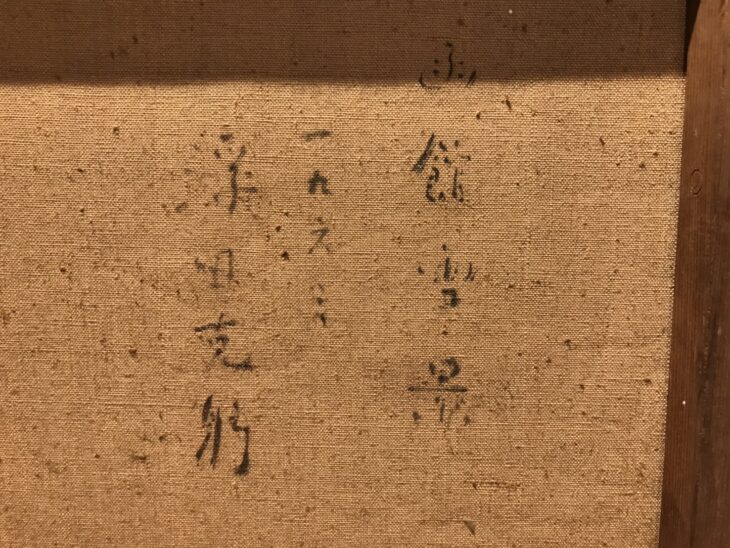 函館雪景
一九六三
浮田克躬